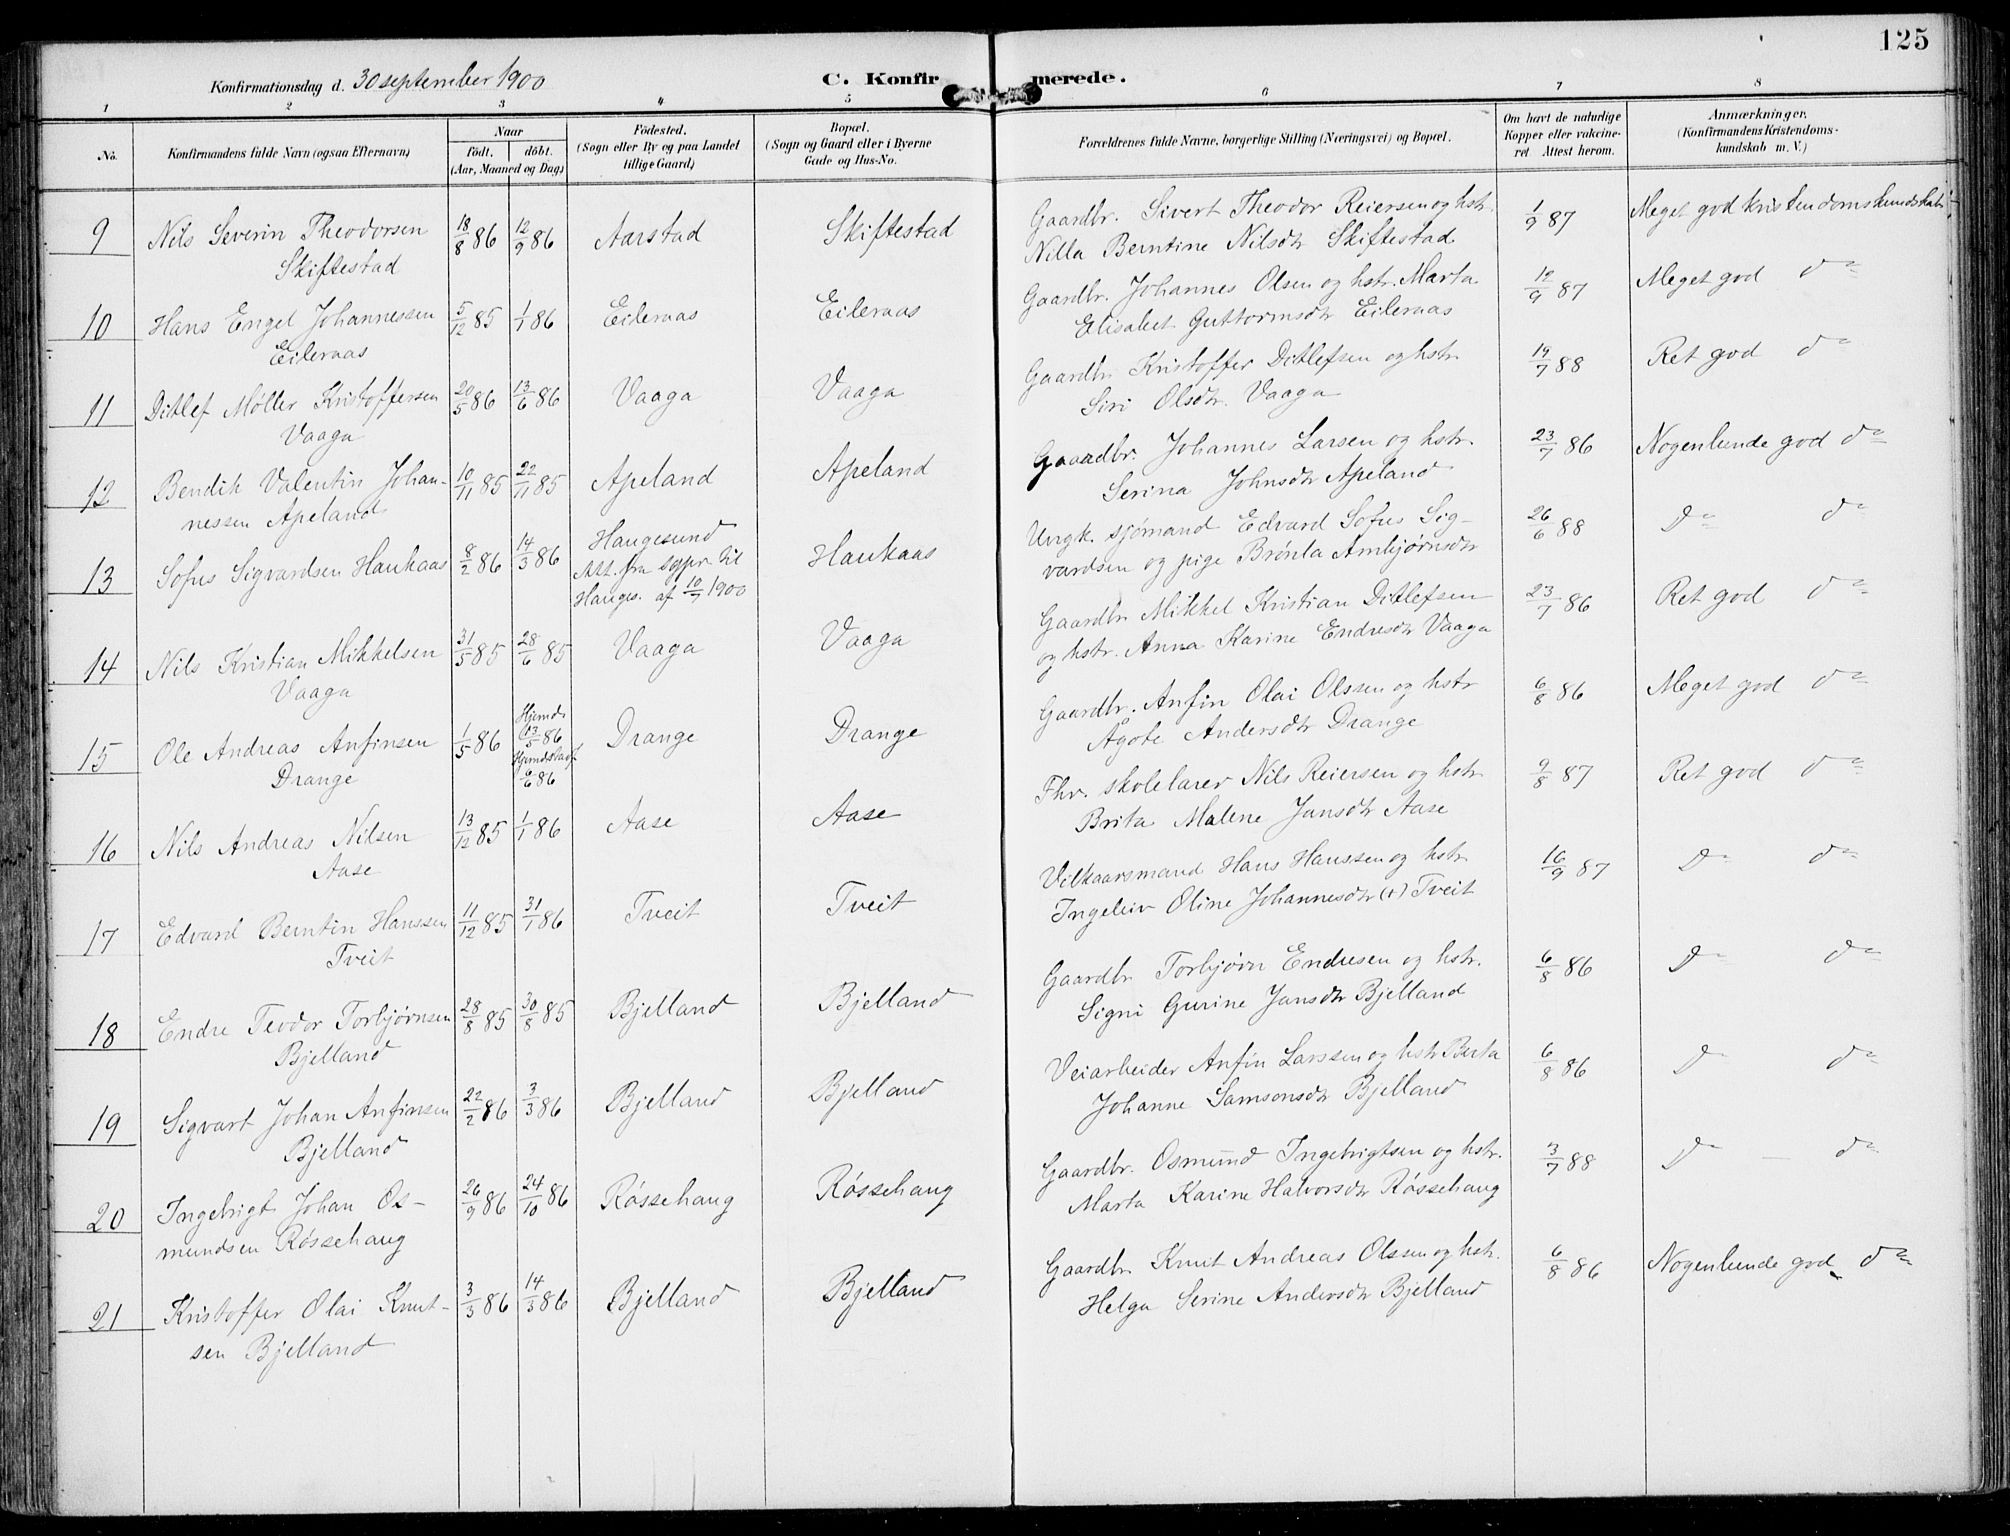 125
Konfirmationsdag d. 30 september 1900
C. Konfirmerede.
1 2 3 4 5 6 7 8
No.
Konfirmandens fulde Navn (ogsaa Efternavn)
Naar
Födt. döbt.
(Aar, Maaned og Dag)
Födested.
(Sogn eller By og paa Landet
tillige Gaard)
Bopæl.
(Sogn og Gaard eller i Byerne
Gade og Hus-No.
Forældrenes fulde Navne, borgerlige Stilling (Næringsvei) og Bopæl.
Om havt de naturlige
Kopper eller vakcine-
ret Attest herom.
Anmærkninger.
(Konfirmandens Kristendoms-
kundskab m. V.)
9 Nils Severin Theodorsen 18/8 86 12/9 86 Aarstad Skiftestad Gaardbr. Sivert Theodor Reiersen og hstr. 1/9 87 Meget god kristendomskundskab
Skiftestad Nilla Berntine Nilsdtr Skiftestad
10 Hans Engel Johannessen 5/12 85 1/1 86 Eileraas Eileraas Gaardbr. Johannes Olsen og hstr. Marta 12/9 87 Meget god do
Eileraas Elisabet Guttormsdtr Eileraas
11 Ditlef Møller Kristoffersen 20/5 86 13/6 86 Vaaga Vaaga Gaardbr Kristoffer Ditlefsen og hstr. 19/7 88 Ret god do
Vaaga Siri Olsdtr. Vaaga
12 Bendik Valentin Johan- 10/11 85 22/11 85 Apeland Apeland Gaardbr. Johannes Larsen og hstr. 23/7 86 Nogenlunde god do
nessen Apeland Serina Johnsdtr Apeland
13 Sofus Sigvardsen Haukaas 8/2 86 14/3 86 Haugesund Haukaas Ungk. sjømand Edvard Sofus Sig- 26/6 88 Do do
Att. fra sgpr. til vardsen og pige Brönla Ambjørnsdtr
Hauges. af 10/7 1900
14 Nils Kristian Mikkelsen 31/5 85 28/6 85 Vaaga Vaaga Gaardbr Mikkel Kristian Ditlefsen 23/7 86 Ret god do
Vaaga og hstr. Anna Karine Endresdtr Vaaga
15 Ole Andreas Anfinsen 1/5 86 Hjemd. 13/5 86 Drange Drange Gaardbr. Anfin Olai Olssen og hstr 6/8 86 Meget god do
Drange Hjemdstadf. 6/6 86 Ågote Andersdtr Drange
16 Nils Andreas Nilsen 13/12 85 1/1 86 Aase Aase Fhv. skolelærer Nils Reiersen og hstr 9/8 87 Ret god do
Aase Brita Malene Jansdtr Aase
17 Edvard Berntin Hanssen 11/12 85 31/1 86 Tveit Tveit Vilkaarsmand Hans Hanssen og hstr 16/9 87 Do do
Tveit Ingeleiv Oline Johannesdtr (+) Tveit
18 Endre Teodor Torbjørnsen 28/8 85 30/8 85 Bjelland Bjelland Gaardbr Torbjørn Endresen og hstr. 6/8 86 Do do
Bjelland Signi Gurine Jansdtr Bjelland
19 Sigvart Johan Anfinsen 22/2 86 3/3 86 Bjelland Bjelland Veiarbeider Anfin Larssen og hstr Berta 6/8 86 Do do
Bjelland Johanne Samsonsdtr Bjelland
20 Ingebrigt Johan Os- 26/9 86 24/10 86 Røssehaug Røssehaug Gaardbr. Osmund Ingebrigtsen og hstr. 3/7 88 Do - do
mundsen Røssehaug Marta Karine Halvorsdtr Røssehaug
21 Kristoffer Olai Knut- 3/3 86 14/3 86 Bjelland Bjelland Gaardbr Knut Andreas Olssen og hstr. 6/8 86 Nogenlunde god do
sen Bjelland Helga Serine Andersdtr Bjelland